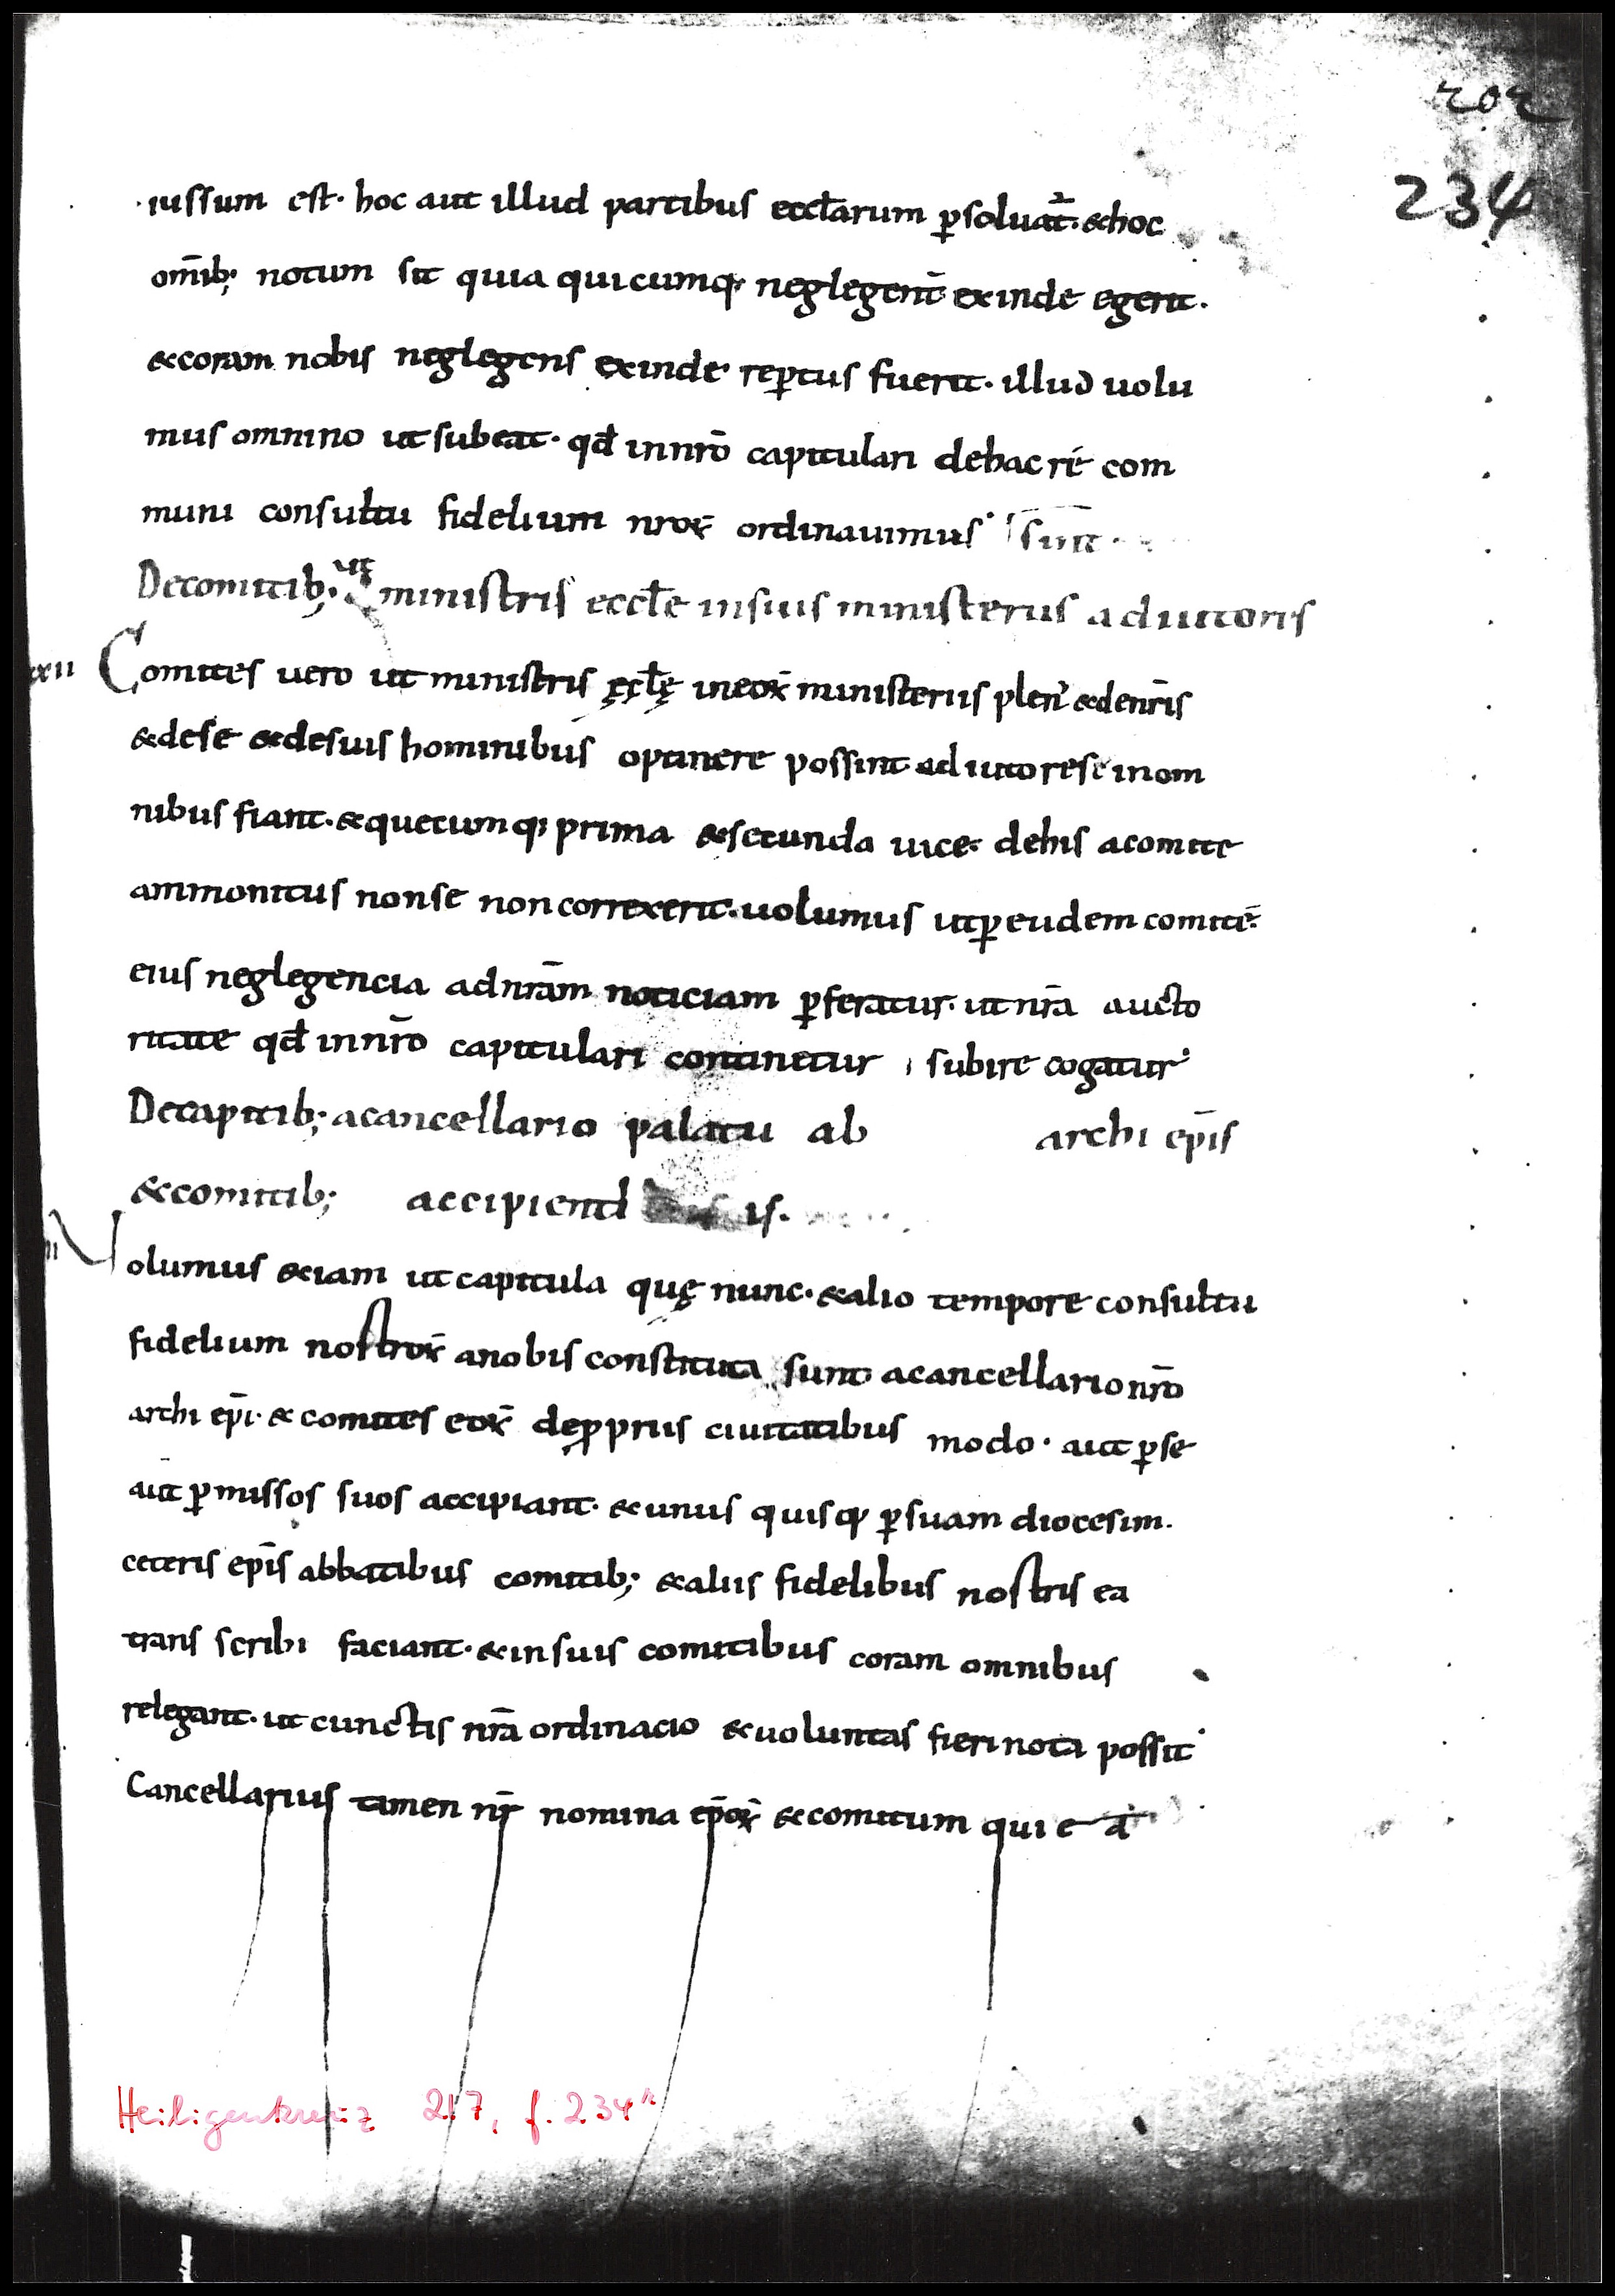 202
234
iussum est· hoc aut illud partibus eccłarum p̲soluat̄· &hoc
om̄ib; notum sit quia quicumq; neglegent̄ exinde egerit·
&coram nobis neglegens exinde rep̲tus fuerit· illud uolu
mus omnino ut subeat· qđ innr̄o capitulari dehac re com
muni consultu fidelium nroꝝ ordinauimus· sint·
Decomitib; ut ministris eccłe insuis ministeriis adiutoris
xxii Comites uero ut ministris ęcłę ineoꝝ ministeriis plen̄ &denr̄is
&dese &desuis hominibus optinere possint adiutorese inom
nibus fiant· &quecumq; prima &secunda uice· dehis acomite
ammonitus nonse noncorrexerit· uolumus utp̲eudem comitē·
eius neglegencia adnr̄am noticiam p̲feratur· utnr̄a aucto
ritate qđ innr̄o capitulari continetur subire cogatur·
Decapitib; acancellario palatii ab archi ep̄is
&comitib; accipiend is·
Uolumus &iam ut capitula quę nunc· &alio tempore consultu
fidelium nostroꝝ anobis constituta sunt acancellario nr̄o
archi ep̄i· & comites eoꝝ deꝓpriis ciuitatibus modo· aut p̲se
aut p̲missos suos accipiant· &unus quisq; p̲suam diocesim·
ceteris ep̄is abbatibus comitib; &aliis fidelibus nostris ea
trans scribi faciant· &insuis comitibus coram omnibus
relegant· ut cunctis nr̄a ordinacio &uoluntas fieri nota possit·
Cancellarius tamen nr̄ nomina ep̄oꝝ &comitum qui e a
Heiligenkreuz 217, f. 234r